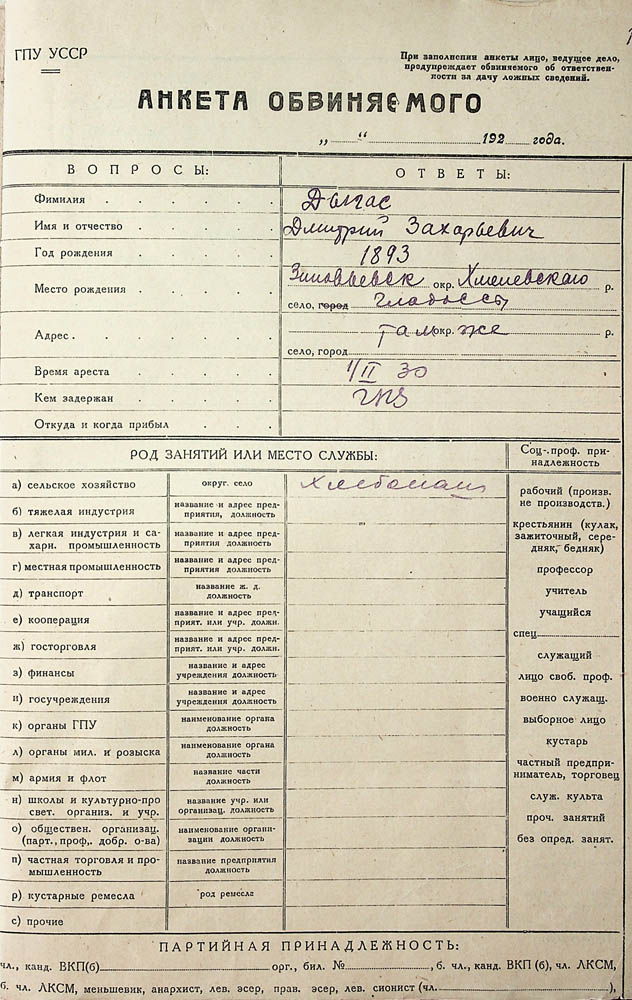 ГПУ УССР
При заполнении анкеты лицо, ведущее дело,
предупреждает обвиняемого об ответствен-
ности за дачу ложных сведений.
АНКЕТА ОБВИНЯЕМОГО
„ “ 192 года.
ВОПРОСЫ: ОТВЕТЫ:
Фамилия
Имя и отчество Дмитрий Захарьевич
Год рождения 1893
Место рождения Зиновьевск окр. Хмелевского р.
село, город Глодоссы
Адрес. там окр. же р.
село, город
Время ареста 1/II 30
Кем задержан ГПУ
Откуда и когда прибыл
РОД ЗАНЯТИЙ ИЛИ МЕСТО СЛУЖБЫ: Соц.-проф. при-
надлежность
а) сельское хозяйство округ. село Хлебопаш
б) тяжелая индустрия название и адрес пред-
приятия, должность
в) легкая индустрия и са-
харн. промышленность название и адрес пред-
приятия должность
г) местная промышленность название и адрес пред-
приятия должность
д) транспорт название ж. д.
должность
е) кооперация название и адрес пред-
прият. или учр. должн.
ж) госторговля название и адрес пред-
прият. или учр. должн.
з) финансы название и адрес
учреждения должность
и) госучреждения название и адрес
учреждения должность
к) органы ГПУ наименование органа
должность
л) органы мил. и розыска наименование органа
должность
м) армия и флот название части
должность
н) школы и культурно-про
свет. организ. и учр. название учр. или
организац. должность
о) обществен. организац.
(парт., проф,. добр. о-ва) наименование органи-
зации должность
п) частная торговля и про-
мышленность название предприятия
должность
р) кустарные ремесла род ремесла
с) прочие
рабочий (произв.
не производств.)
крестьянин (кулак,
зажиточный, сере-
дняк, бедняк)
профессор
учитель
учащийся
спец
служащий
лицо своб. проф.
военно служащ.
выборное лицо
кустарь
частный предпри-
ниматель, торговец
служ. культа
проч. занятий
без опред. занят.
ПАРТИЙНАЯ ПРИНАДЛЕЖНОСТЬ:
чл., канд. ВКП(б) орг., бил. № , б. чл., канд. ВКП (б), чл. ЛКСМ,
б. чл. ЛКСМ, меньшевик, анархист, лев. эсер, прав. эсер, лев. сионист (чл. ),